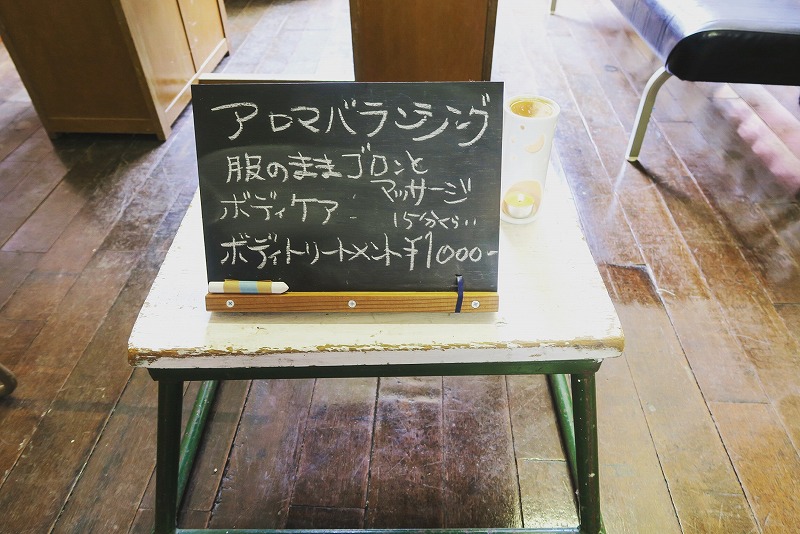 アロマバランシング
服のままゴロンと
ボディケア マッサージ
15分くらい
ボディトリートメント ¥1000-